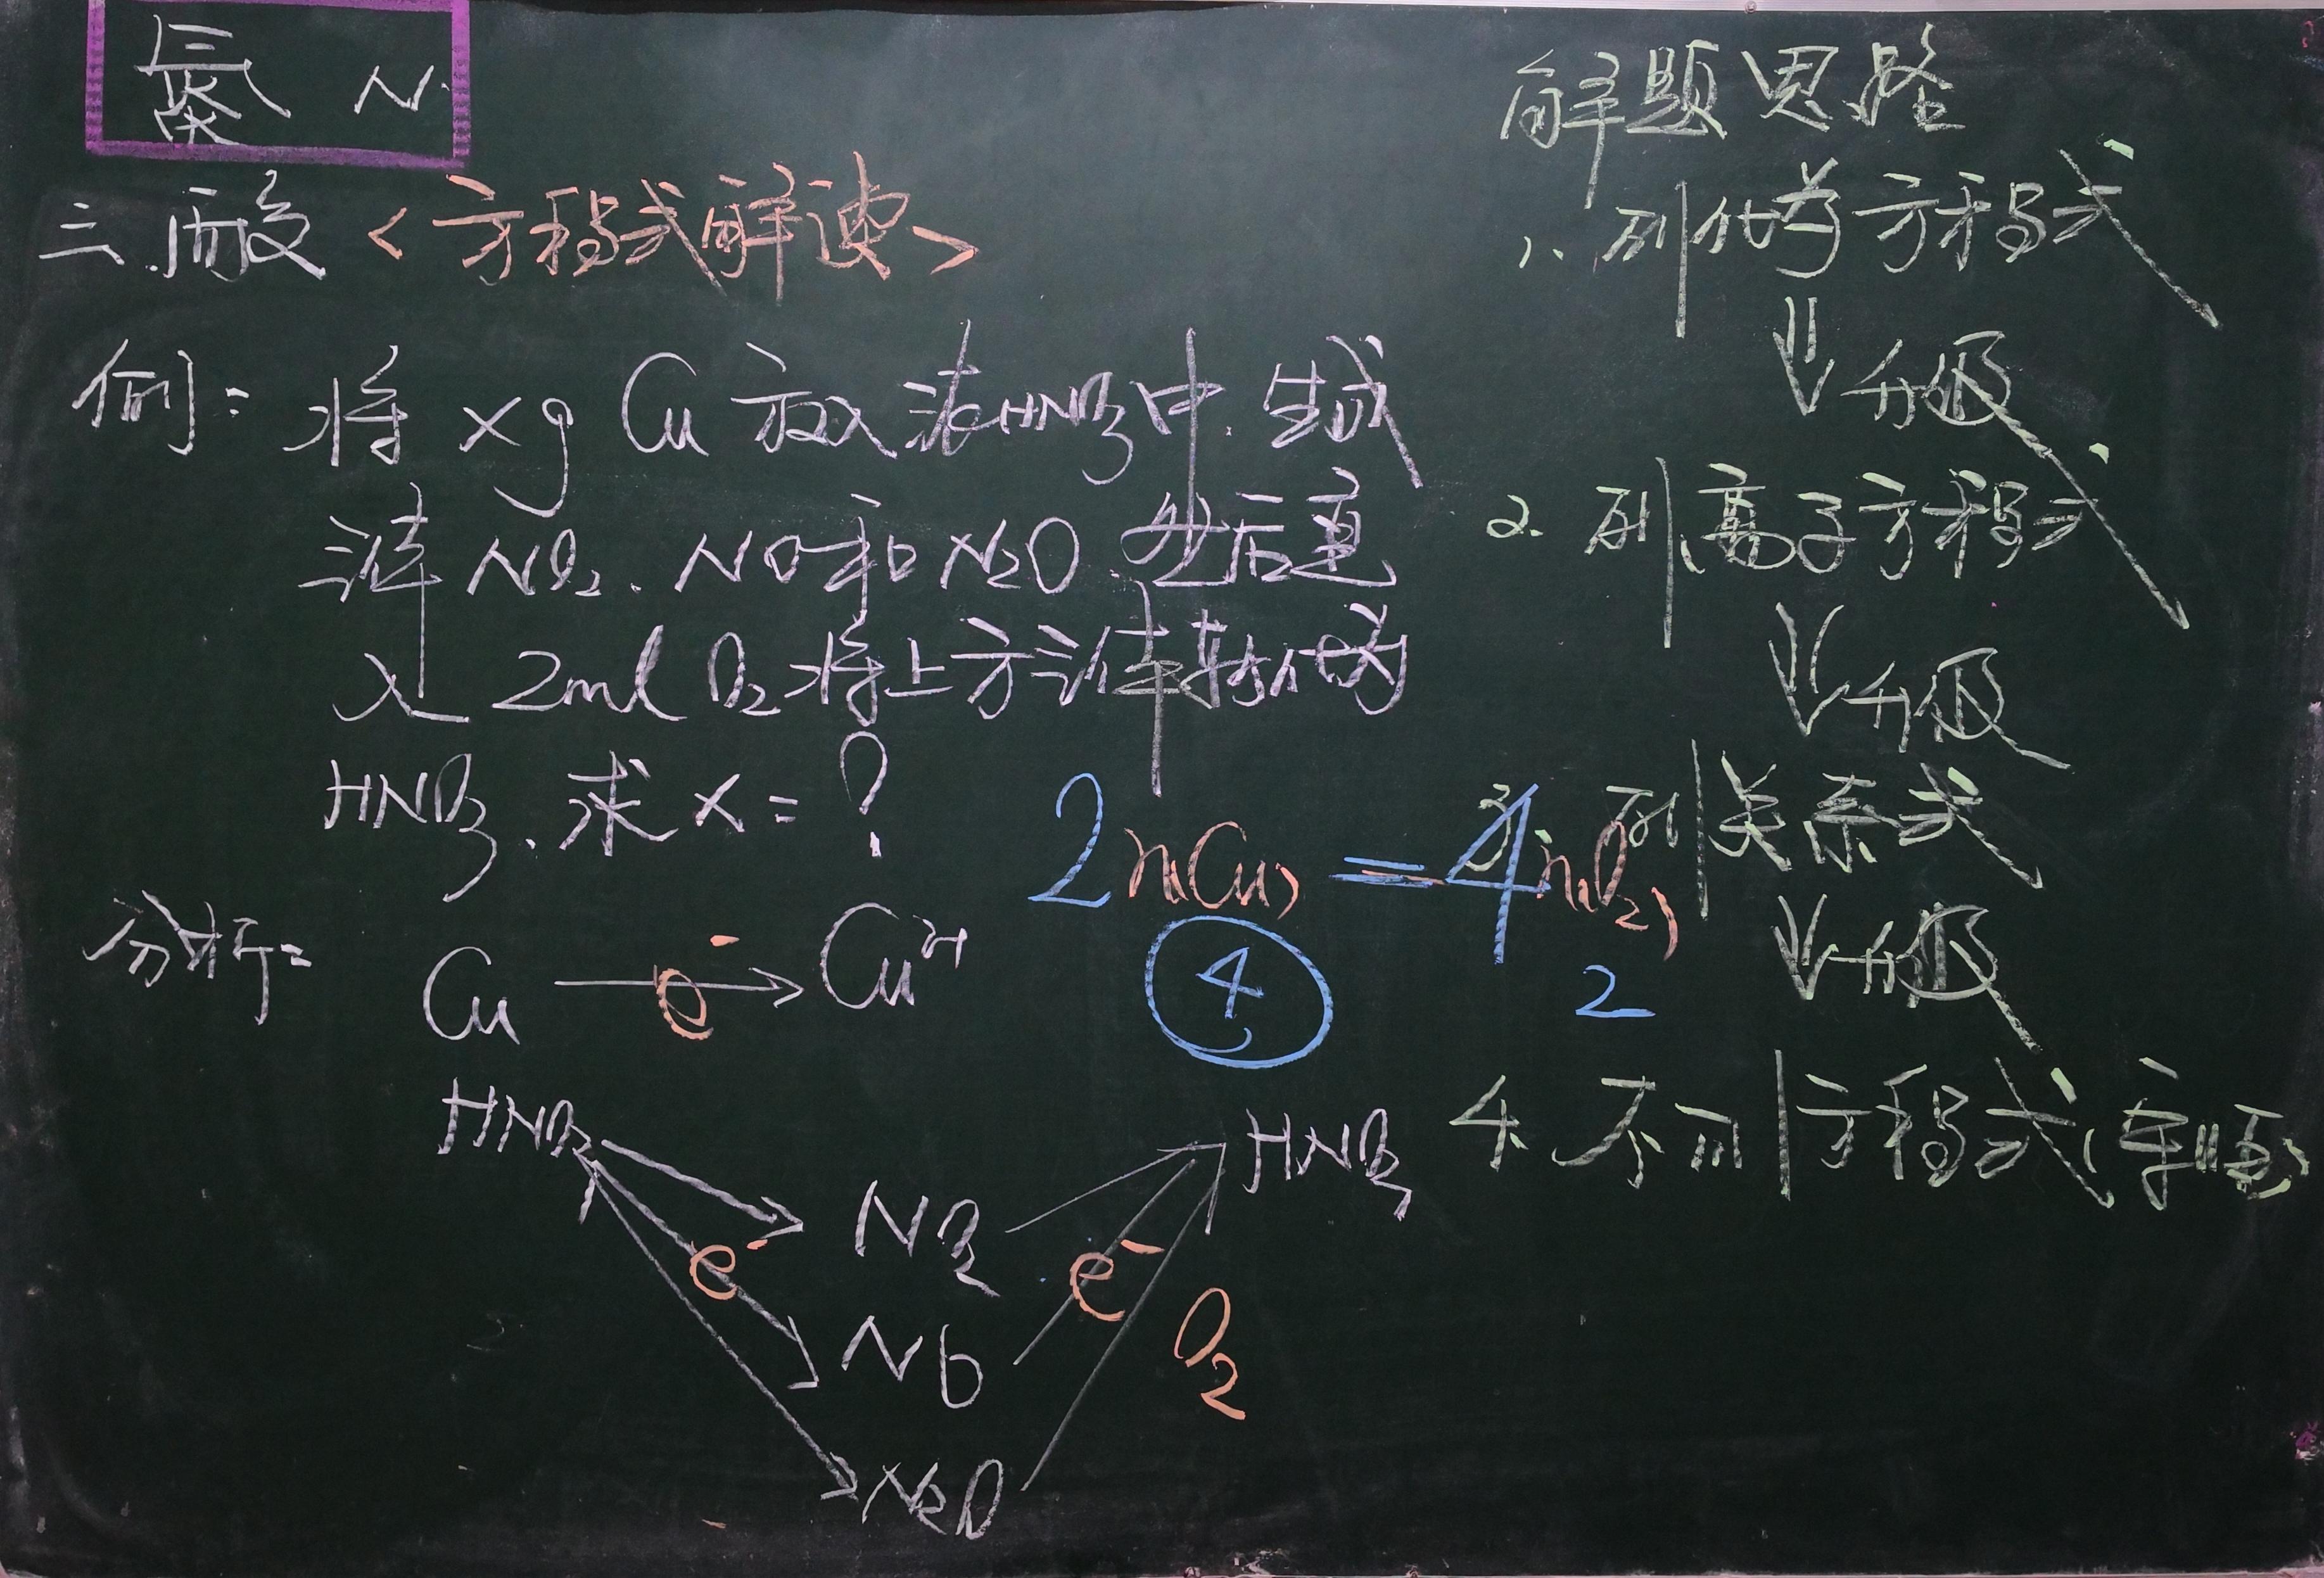 氮 N
三.硝酸<方程式解读>
例: 将 x g Cu 放入浓HNO3中.生成
气体 NO2. NO和N2O 然后通
入 2ml O2将上方气体转化为
HNO3.求 x = ?
2n(Cu) = 4n(O2)
④ 2
分析:
Cu e- Cu2+
HNO3 NO2 HNO3
e- e-
NO O2
N2O
解题思路
1. 列化学方程式
升级
2. 列离子方程式
升级
3. 列关系式
升级
4. 不列方程式(守恒)